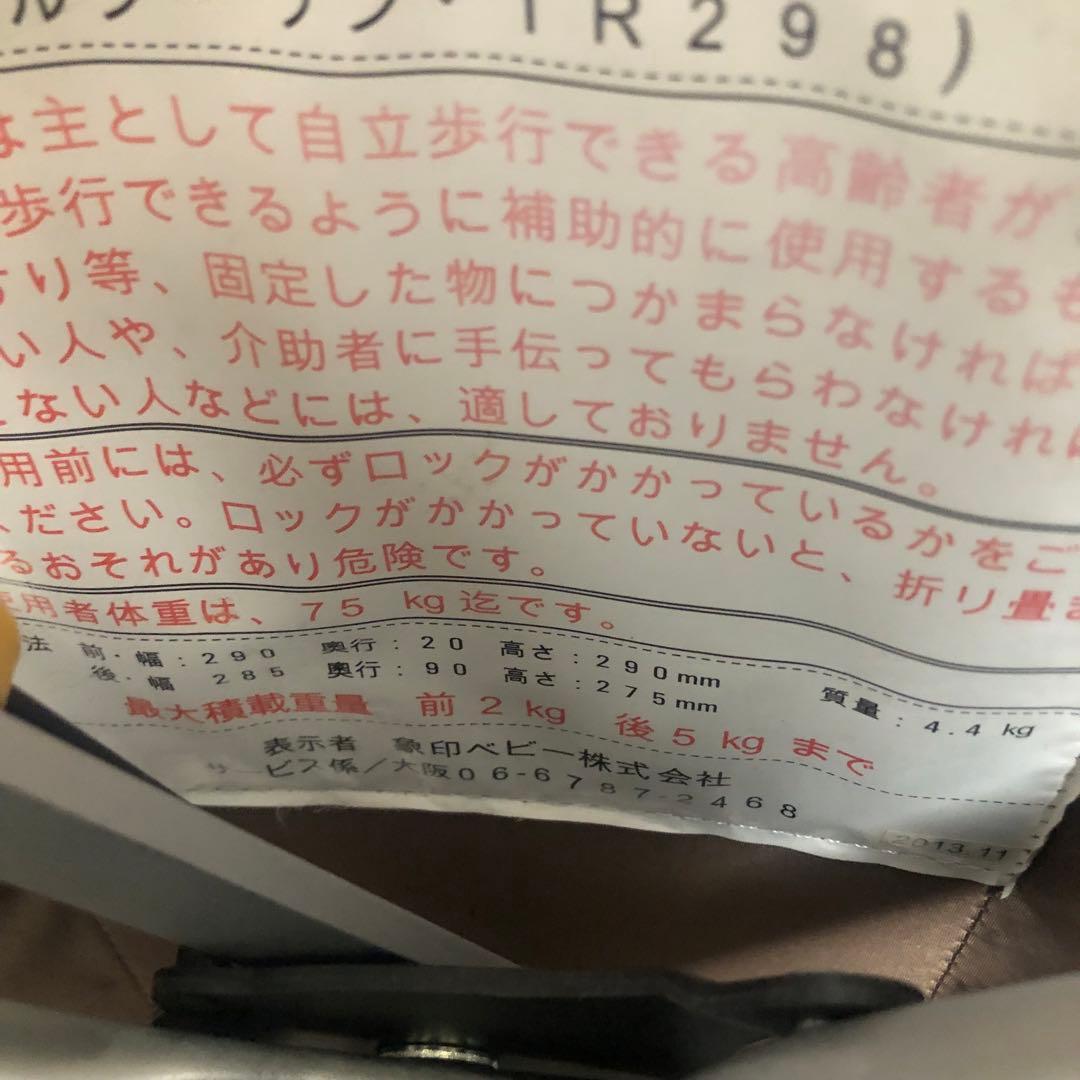 TR298)
は主として自立歩行できる高齢者が
歩行できるように補助的に使用するも
り等、固定した物につかまらなければ
い人や、介助者に手伝ってもらわなければ
えない人などには、適しておりません。
用前には、必ずロックがかかっているかをご
ください。ロックがかかっていないと、折り畳ま
るおそれがあり危険です。
使用者体重は、75 kg迄です。
法 前・幅:290 奥行:20 高さ:290mm
後・幅 285 奥行:90 高さ:275mm 質量:4.4kg
最大積載重量 前2kg 後5kgまで
表示者 象印ベビー株式会社
サービス係/大阪06-6787-2468
2013.11